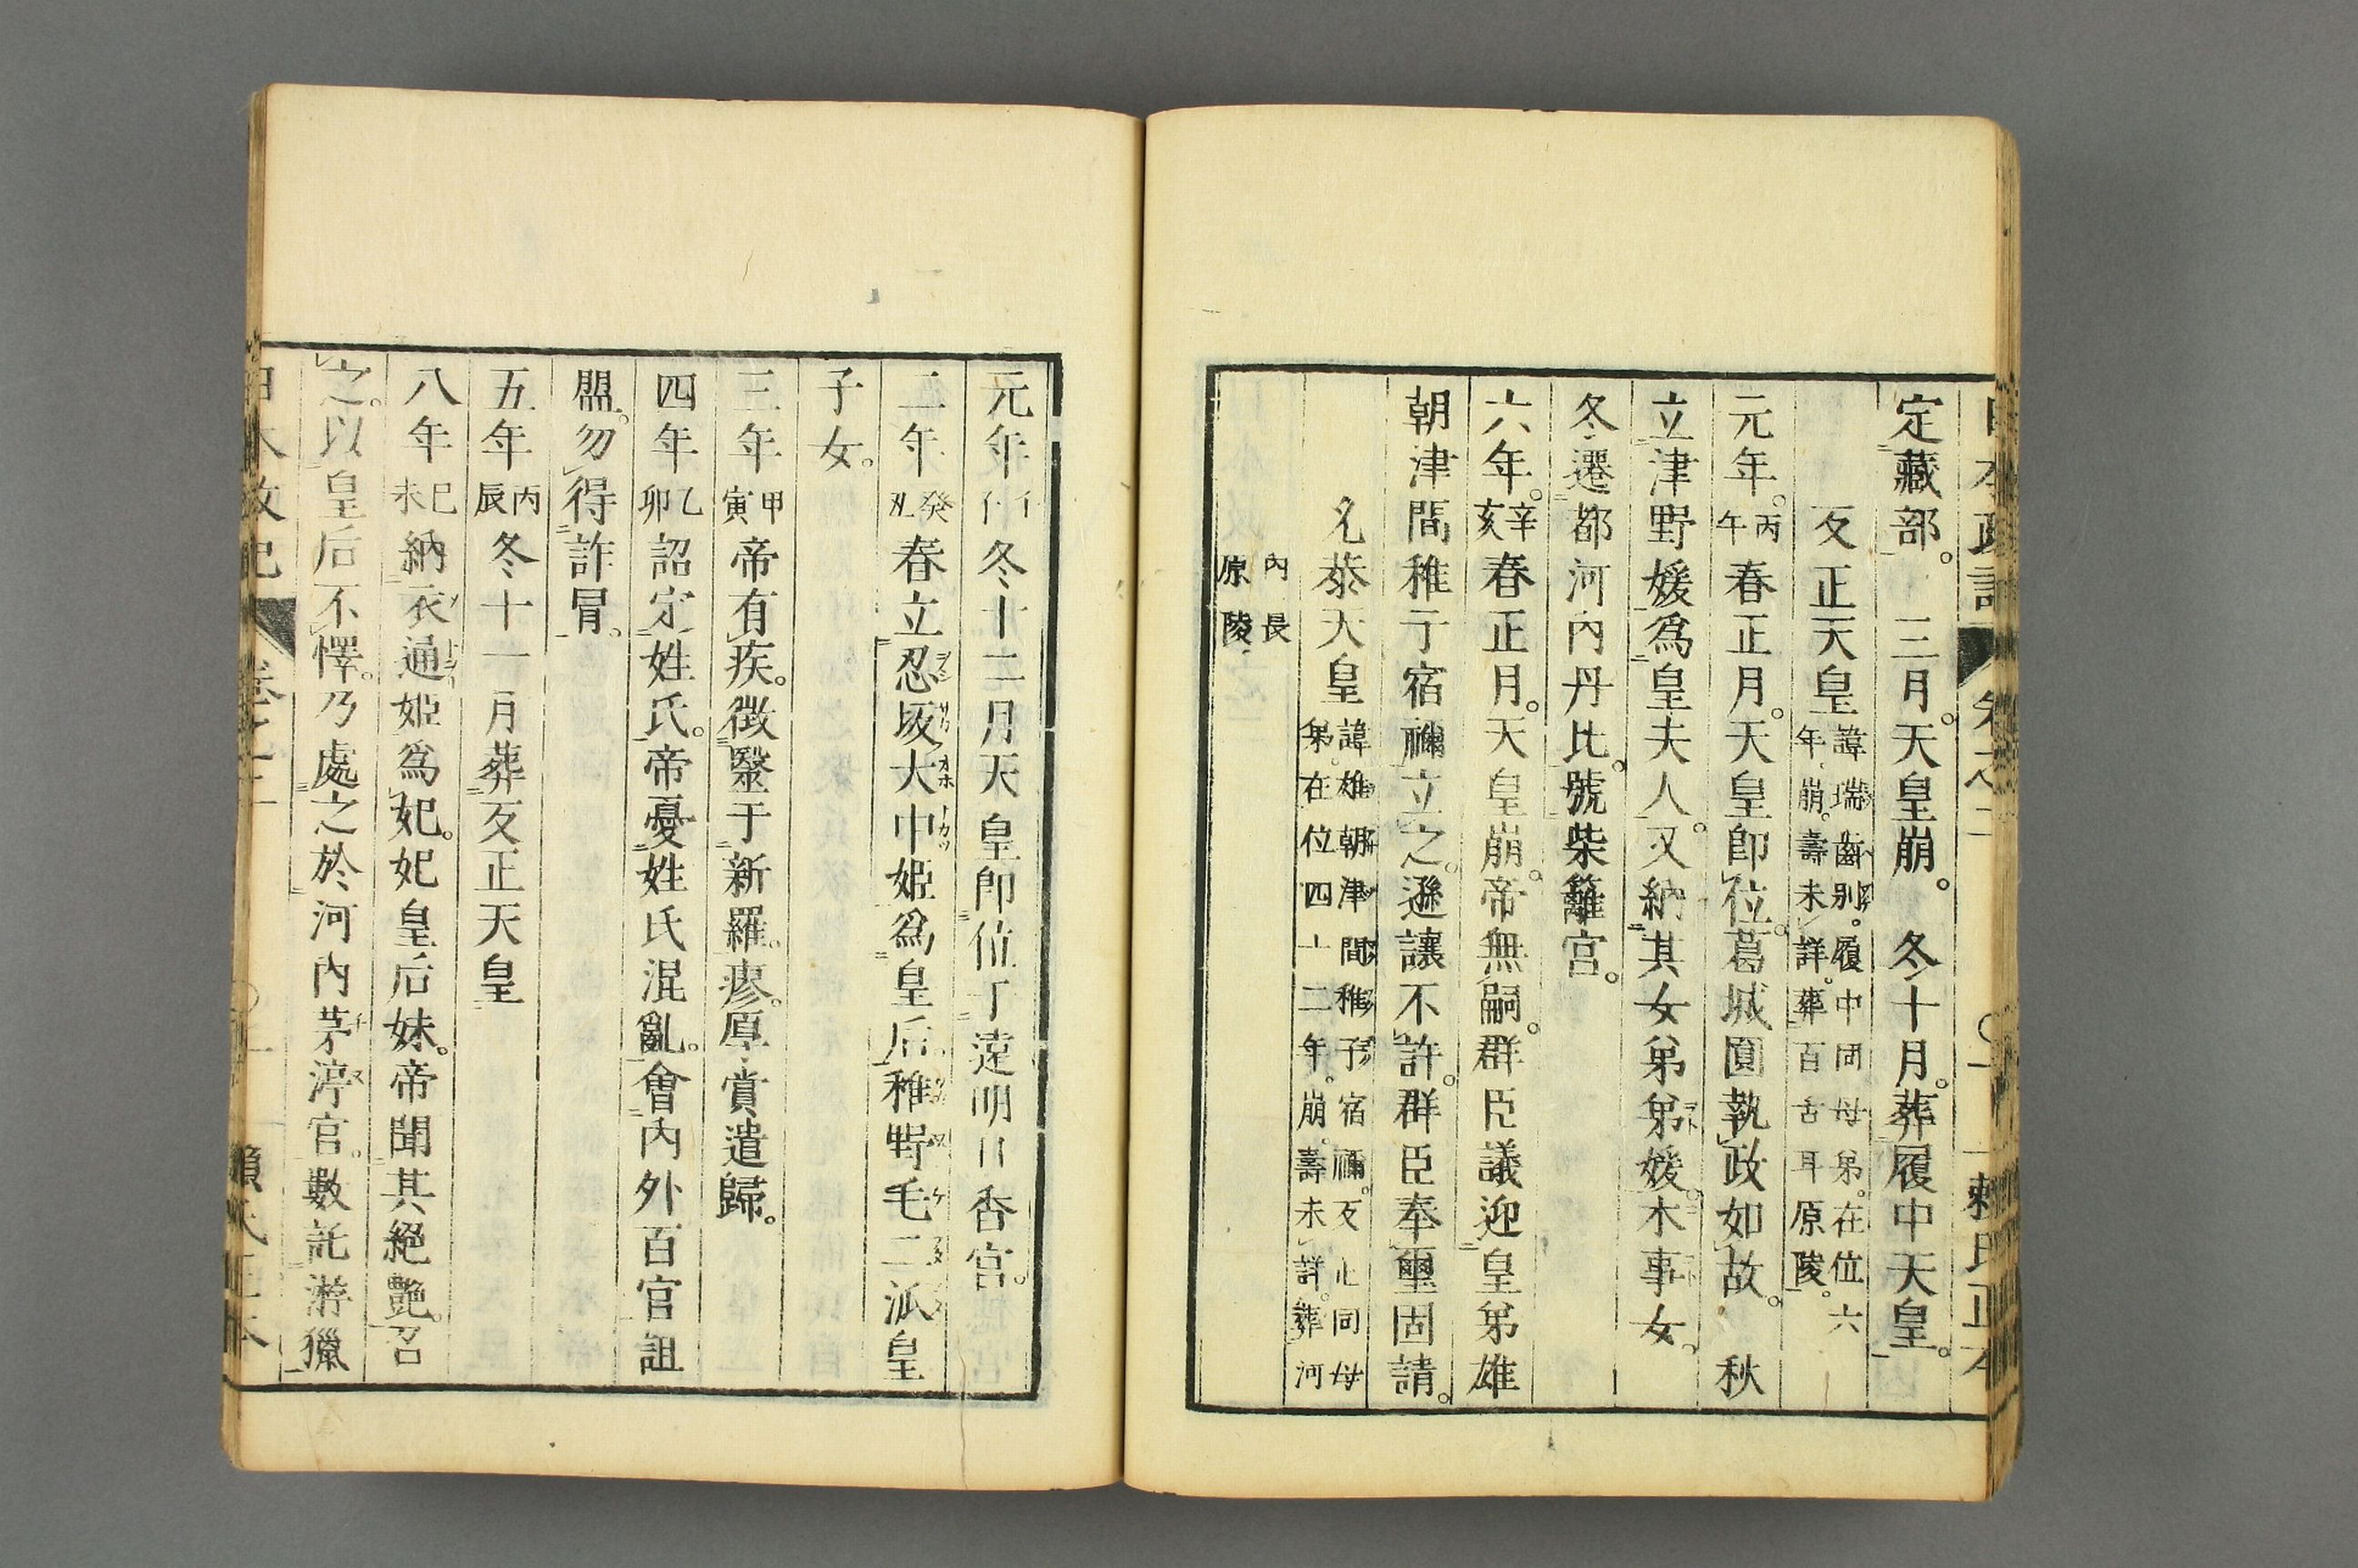 日本政記 卷之二 賴氏正本
定藏部。三月。天皇崩。冬十月。葬履中天皇。
反正天皇 諱瑞齒別。履中同母弟。在位六
年。崩。壽未詳。葬百舌耳原陵。
元年。丙午春正月。天皇卽位。葛城圓執政如故。秋
立津野媛爲皇夫人。又納其女弟弟媛。木事女。
冬遷都河內丹比。號柴籬宮。
六年。辛亥春正月。天皇崩。帝無嗣。群臣議迎皇弟雄
朝津間稚子宿禰立之。遜讓不許。群臣奉璽固請。
允恭天皇 諱雄朝津間稚子宿禰。反正同母
弟。在位四十二年。崩。壽未詳。葬河
內長
原陵
元年 冬十二月天皇卽位于遠明日香宮。
二年 癸丑春立忍坂大中姬爲皇后。稚野毛二派皇
子女。
三年 甲寅帝有疾。徵毉于新羅。瘳。厚賞遣歸。
四年 乙卯詔定姓氏。帝憂姓氏混亂。會內外百官詛
盟。勿得詐冒。
五年 丙辰冬十一月葬反正天皇
八年 己未納衣通姬爲妃。妃皇后妹。帝聞其絕艷。召
之。以皇后不懌。乃處之於河內茅渟宮。數託游獵
日本政記 卷之二 賴氏正本